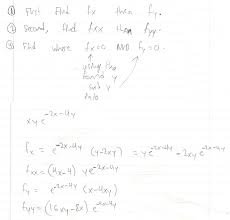 ① First find fx then fy.
② Second, find fxx then fyy.
③ Find where fx=0 AND fy=0.
using this
y
xye^-2x-4y
fx = e^-2x-4y (y-2xy) = ye^-2x-4y - 2xye^-2x-4y
fxx = (4x-4) ye^-2x-4y
fy = e^-2x-4y (x-4xy)
fyy = (16xy-8x) e^-2x-4y